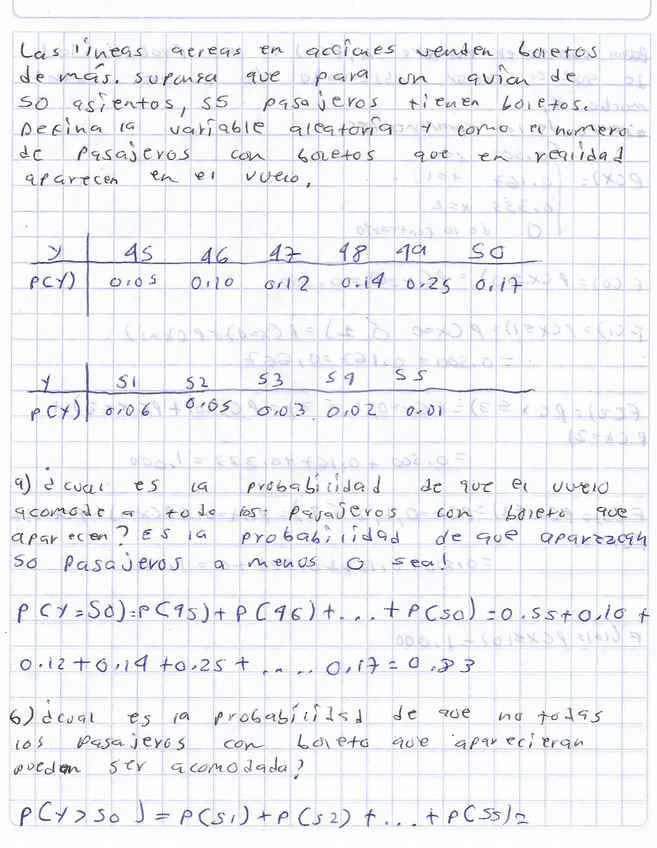 Las lineas aereas en acciones venden boletos
de más. suponga que para un avion de
50 asientos, 55 pasajeros tienen boletos.
Decina la variable aleatoria Y como el numero
de pasajeros con boletos que en realidad
aparecen en el vuelo.
y 45 46 47 48 49 50
P(Y) 0.05 0.10 0.12 0.14 0.25 0.17
y 51 52 53 54 55
P(Y) 0.06 0.05 0.03 0.02 0.01
a) ¿cual es la probabilidad de que el vuelo
acomode a todo los pasajeros con boleto que
aparecen? Es la probabilidad de que aparezcan
50 pasajeros a menos o sea!
P(Y=50)=P(45)+P(46)+...+P(50)=0.55+0.10+
0.12+0.14+0.25+.... 0.17=0.83
b) ¿cual es la probabilidad de que no todas
los pasajeros con boleto que aparecieran
pueden ser acomodada?
P(Y>50)=P(51)+P(52)+...+P(55)=